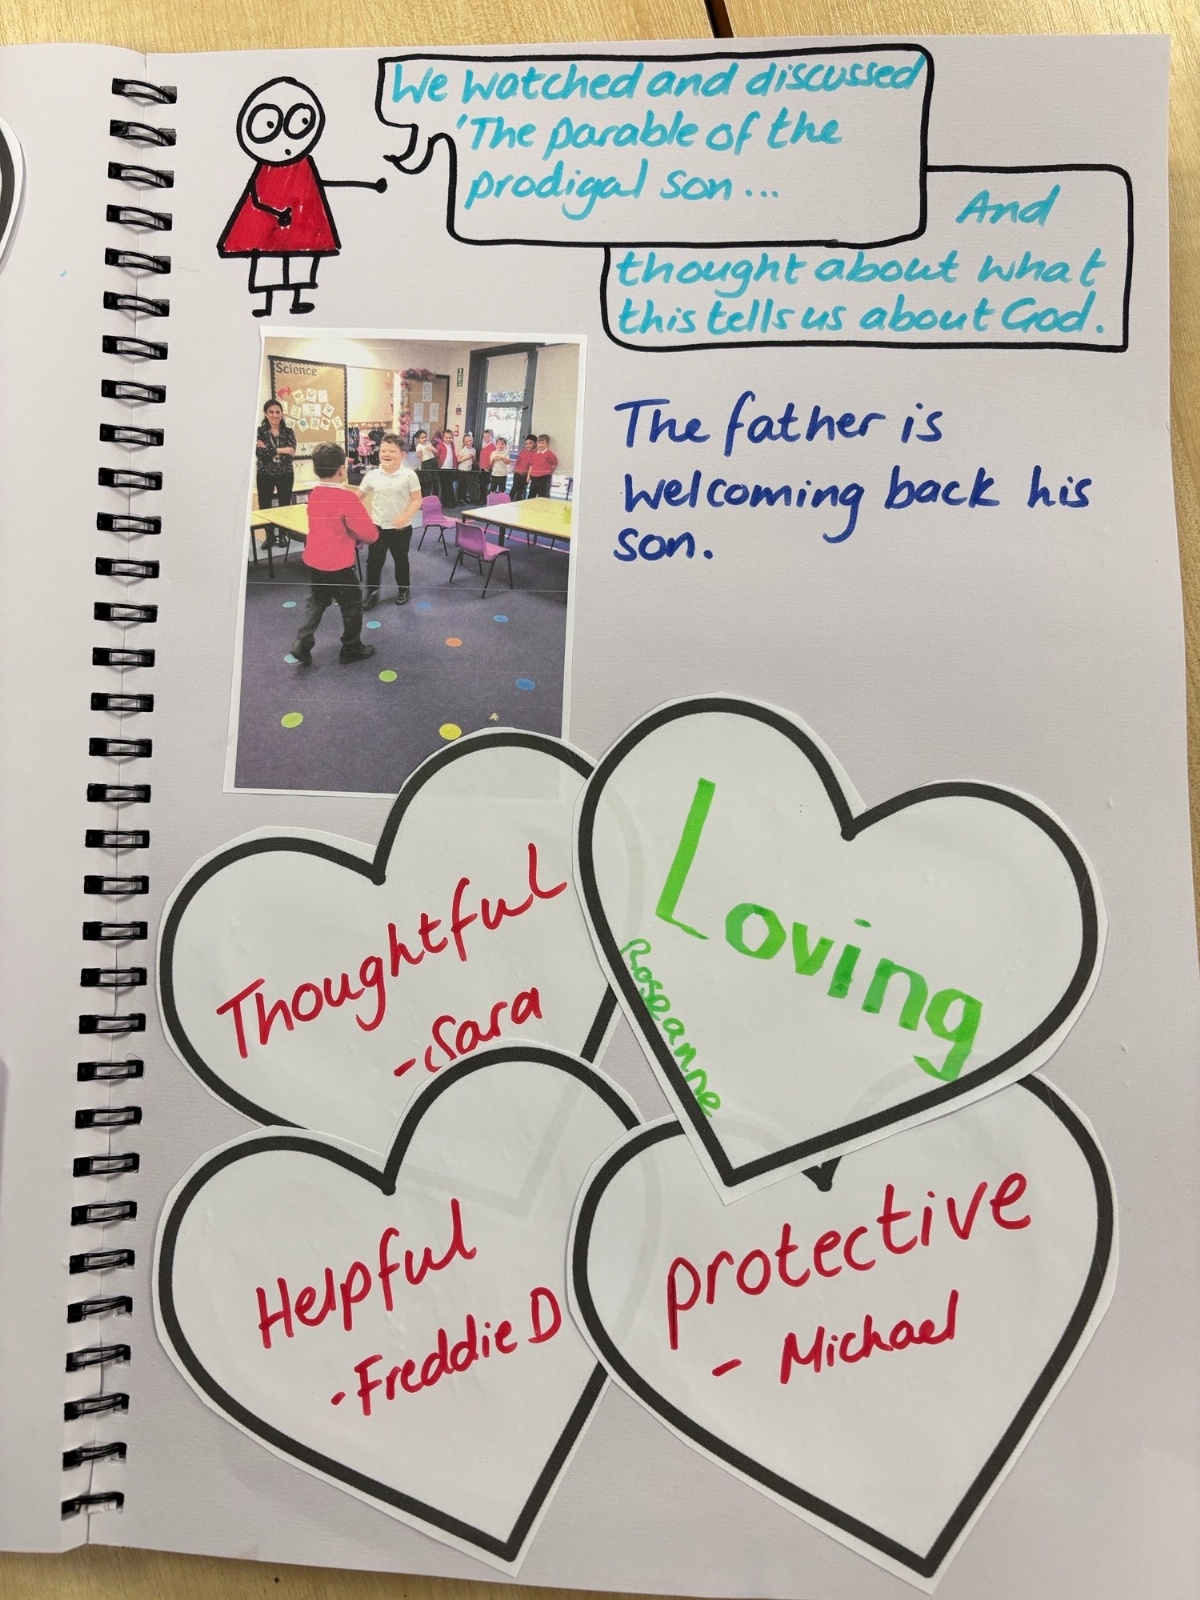 We watched and discussed
'The parable of the
prodigal son...
And
thought about what
this tells us about God.
Science
The father is
welcoming back his
son.
Thoughtful
- Sara
Loving
Roseanne
Helpful
- Freddie D
protective
- Michael